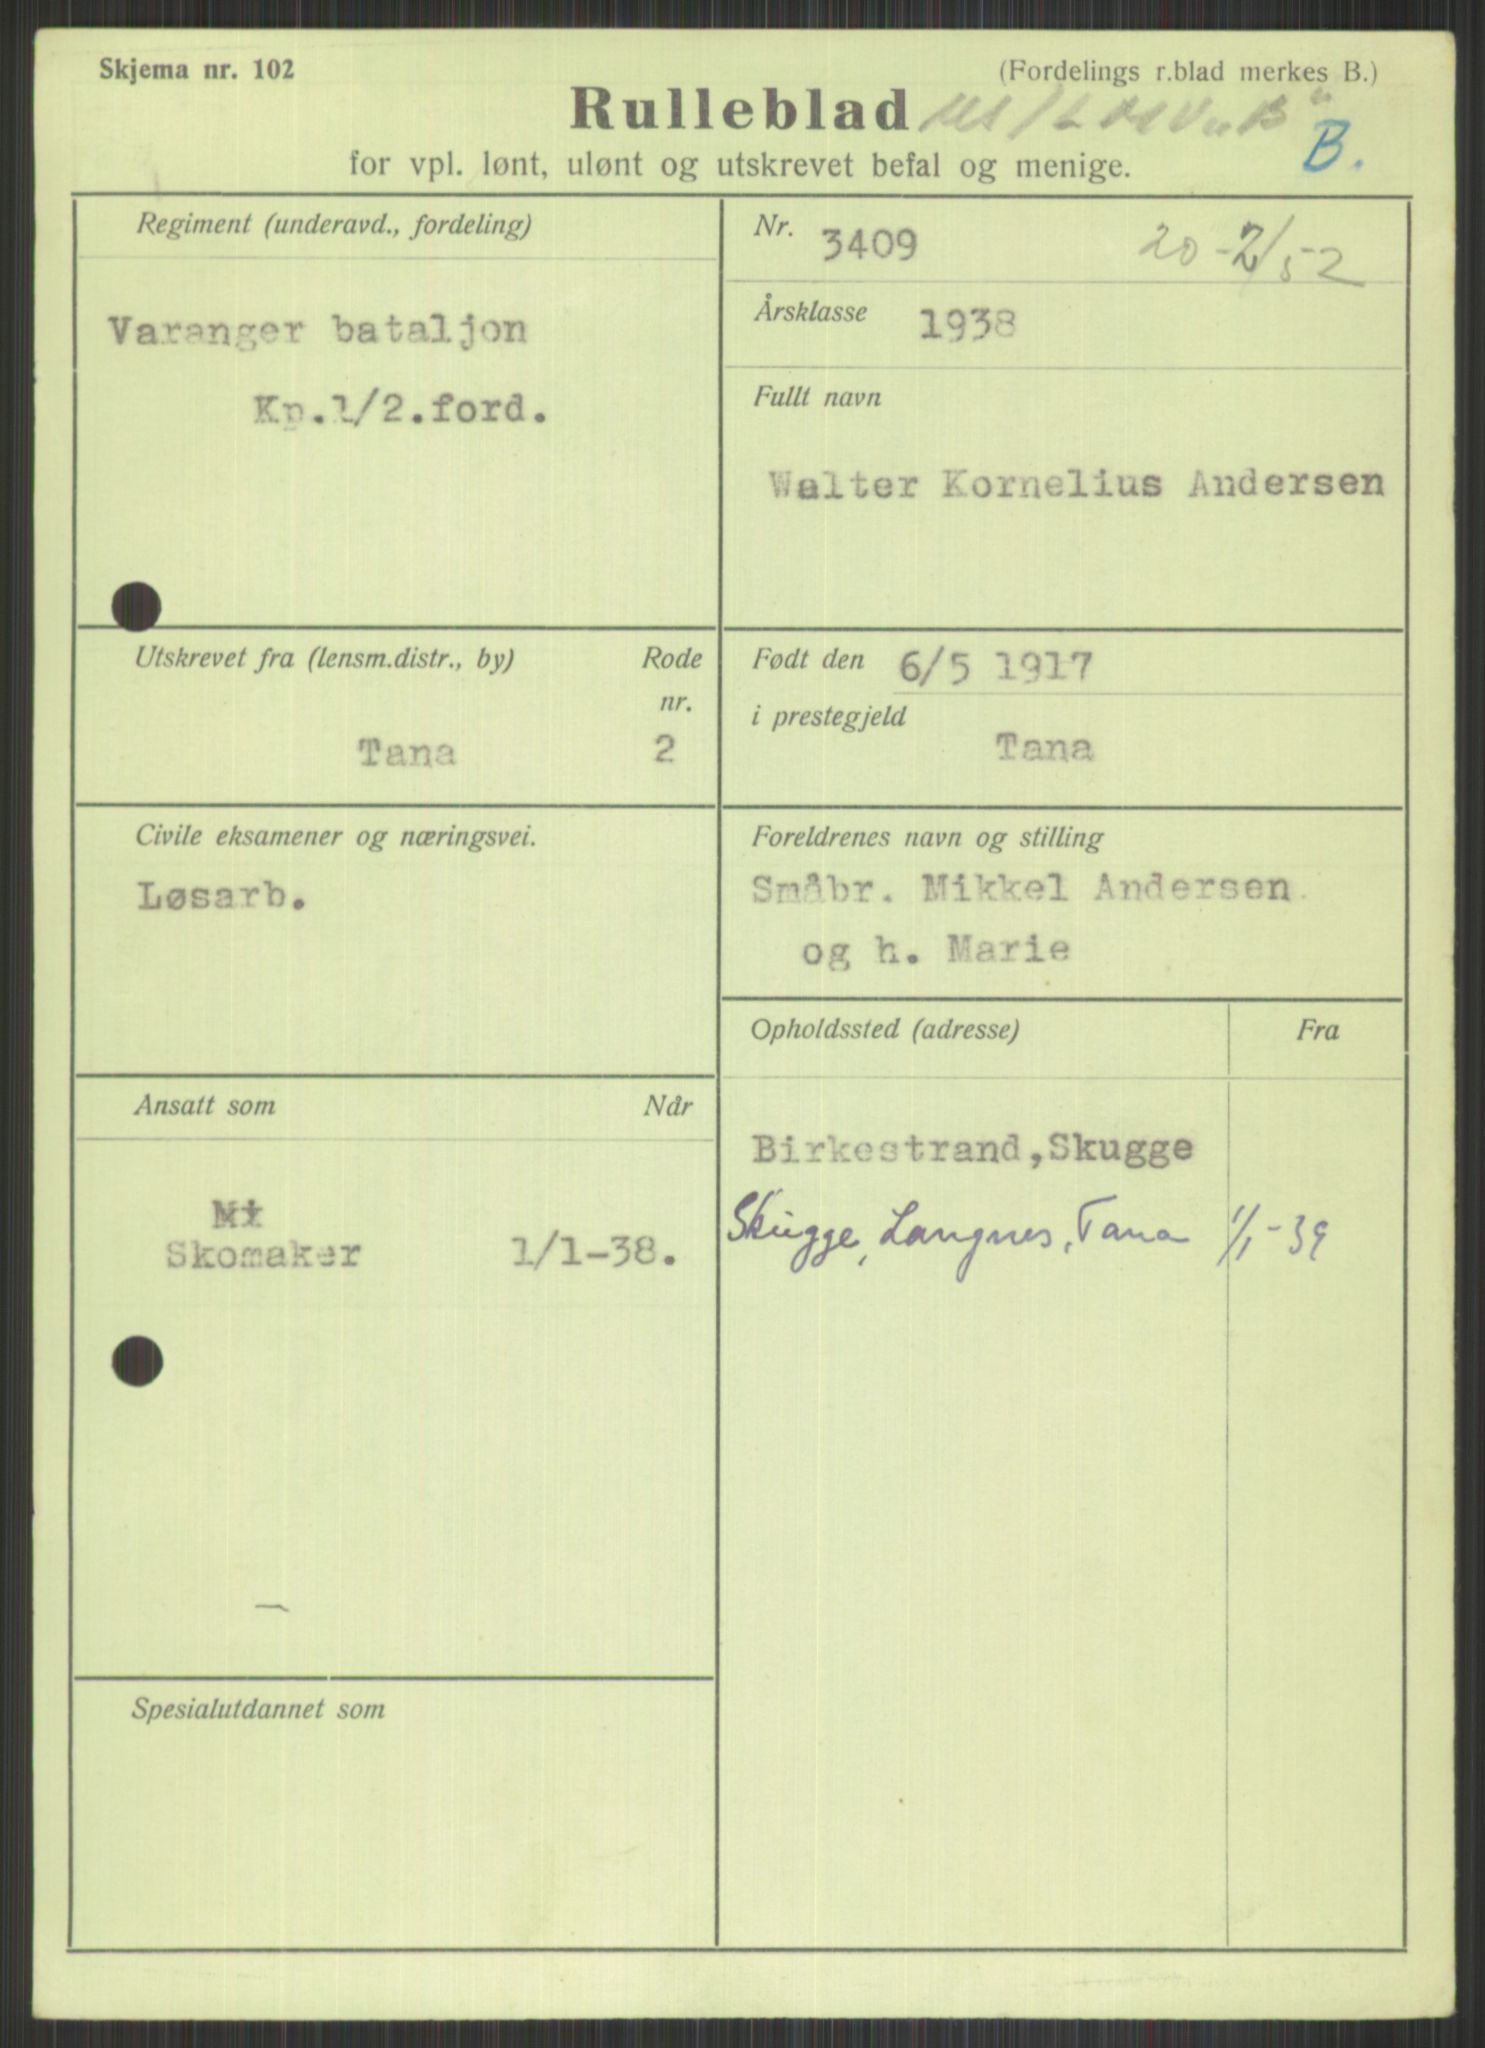 Skjema nr. 102
(Fordelings r.blad merkes B.)
Rulleblad
B.
for vpl. lønt, ulønt og utskrevet befal og menige.
Regiment (underavd., fordeling)
Varanger bataljon
Kp.1/2.ford.
Nr. 3409
20-2/52
Årsklasse 1938
Fullt navn
Walter Kornelius Andersen
Utskrevet fra (lensm.distr., by) Rode
nr.
Tana 2
Født den 6/5 1917
i prestegjeld
Tana
Civile eksamener og næringsvei.
Løsarb.
Foreldrenes navn og stilling
Småbr. Mikkel Andersen
og h. Marie
Ansatt som Når
Mi
Skomaker 1/1-38.
Opholdssted (adresse) Fra
Birkestrand,Skugge
Skugge, Langnes, Tana 1/1-39
Spesialutdannet som